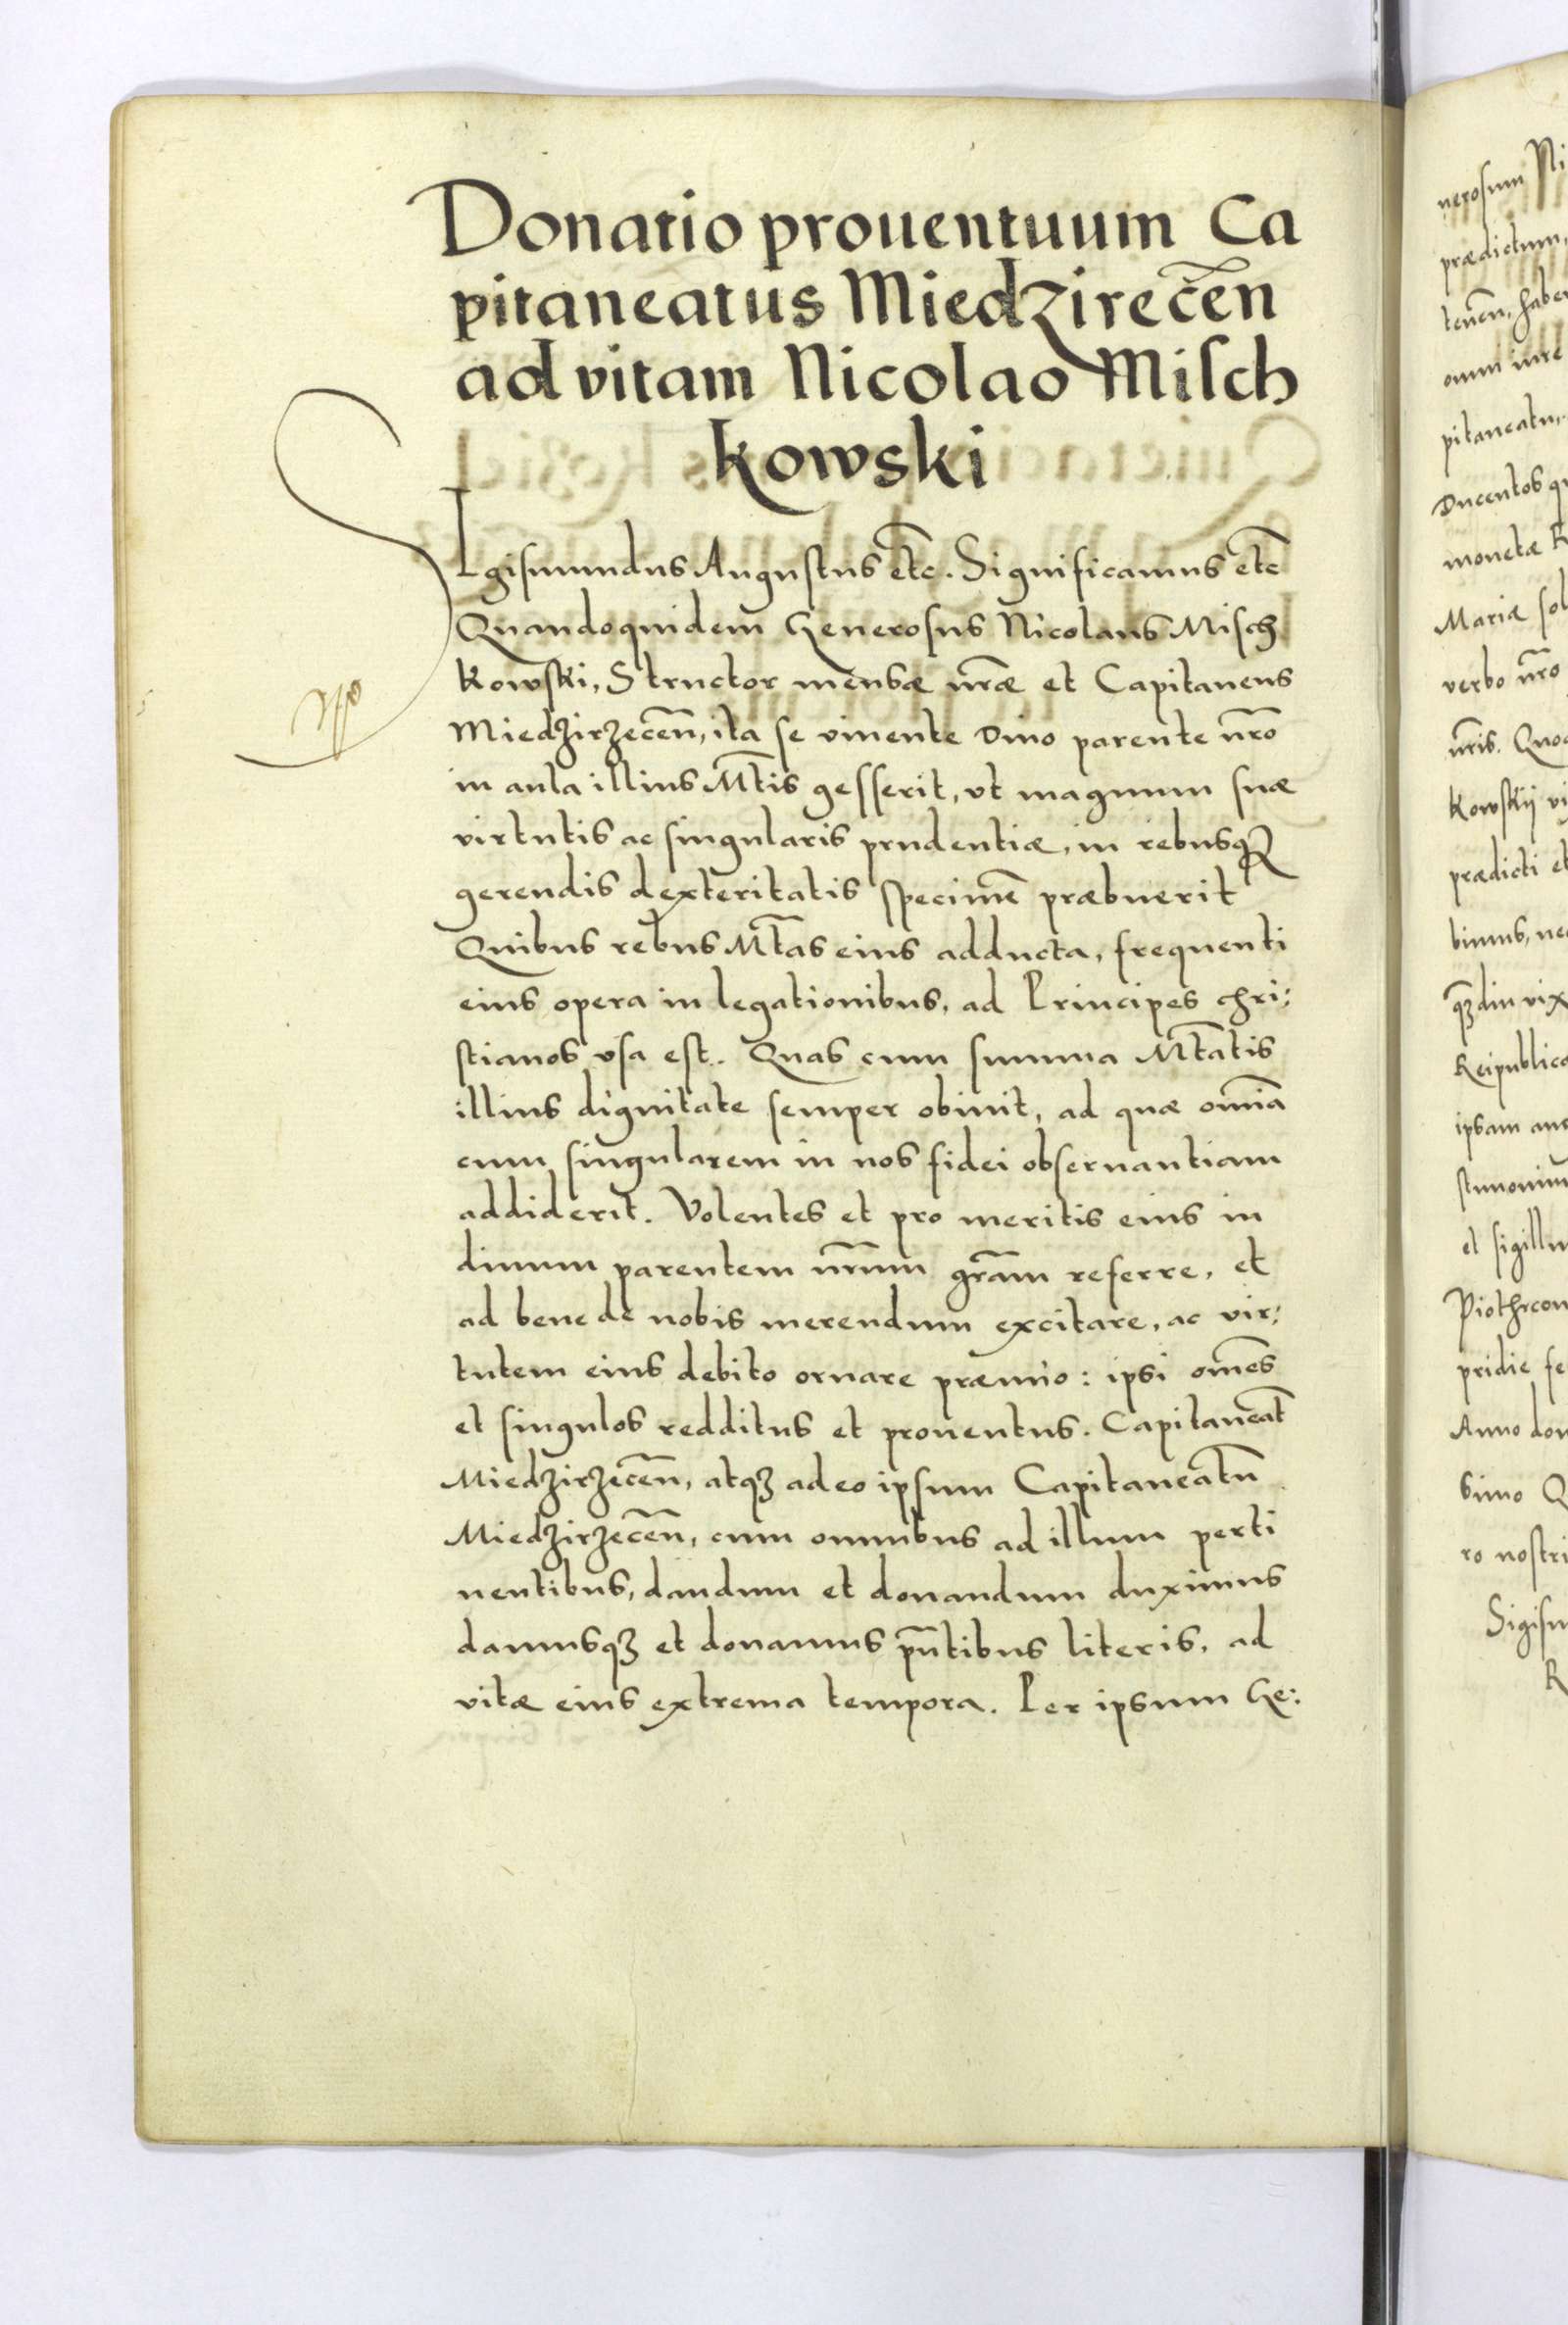 Donatio prouentuum Ca
pitaneatus Miedzirecẽn
ad vitam Nicolao Misch
kowski
SIgismundus Augustus etc̃. Significamus etc̃
Quandoquidem Generosus Nicolaus Misch
kowski, Structor mensæ nr̃æ et Capitaneus
Miedzirzecen̄, ita se viuente Diuo parente nr̃o
in aula illius Mtĩs gesserit, vt magnum suæ
virtutis ac singularis prudentiæ, in rebusqꝫ
gerendis dexteritatis specimẽ præbuerit
Quibus rebus Mtãs eius adducta, frequenti
eius opera in legationibus, ad Principes chri:
stianos vsa est. Quas cum summa Mtãtis
illius dignitate semper obiuit, ad quæ omñia
cum singularem in nos fidei obseruantiam
addiderit. Volentes et pro meritis eius in
diuum parentem nr̃um gr̃am referre, et
ad bene de nobis merendum excitare, ac vir:
tutem eius debito ornare præmio: ipsi om̃es
et singulos redditus et prouentus. Capitaneat̃
Miedzirzecen̄, atqꝫ adeo ipsum Capitaneatũ
Miedzirzecen̄, cum omnibus ad illum perti
nentibus, dandum et donandum duximus
damusqꝫ et donamus pñtibus literis, ad
vitæ eius extrema tempora. Per ipsum Ge:
nerosum Ni
prædictum,
teneñ, haber
omni iure
pitaneatu,
Ducentos qu
monetæ R
Mariæ sol
verbo nr̃o
nr̃is. Quo
kowskij vi
prædicti et
bimus, ne
qꝫdiu vix
Reipublicæ
ipsam au
stimoniu
et sigillu
Piothrcou
pridie fe
Anno dom
simo Q
ro nostri
Sigism
R